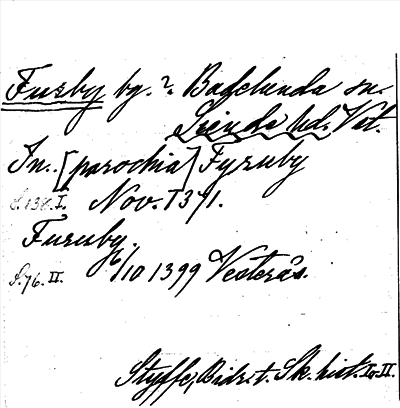 Fusby by.? Badelunda sn.
Siende hd. Vst.
In. [parochia] Fyruby
S. 138. I. Nov. 1371.
Furuby.
S. 76. II. 6/10 1399 Vesterås.
Styffe, Bidr. t. Sk. hist. I o. II.